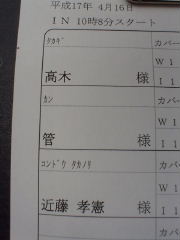 平成17年 4月16日
IN 10時8分スタート
ﾀｶｷﾞ
カバー
高木 様
W 1
I 1
ｶﾝ
カバー
管 様
W 1
I 1
ｺﾝﾄﾞｳ ﾀｶﾉﾘ
カバー
近藤 孝憲 様
W 1
I 1